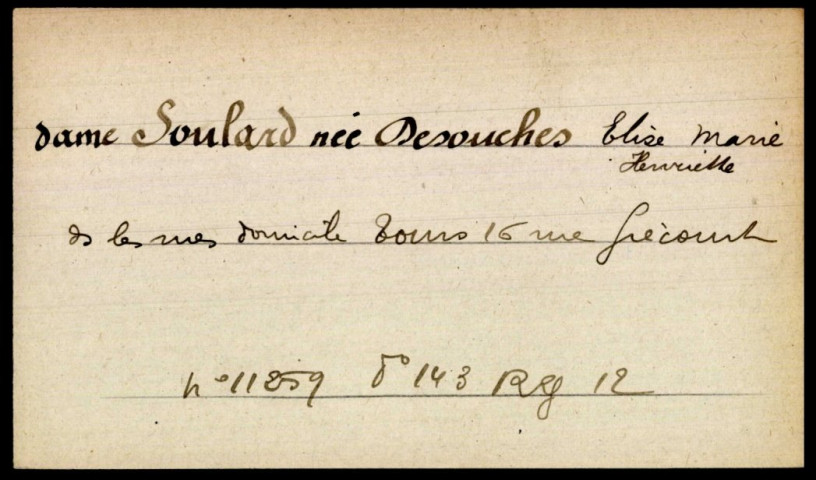 dame Soulard née Desouches Elise Marie
Henriette
ds les rues domicile Tours 16 rue Grécourt
n° 11259 f° 143 Rg 12